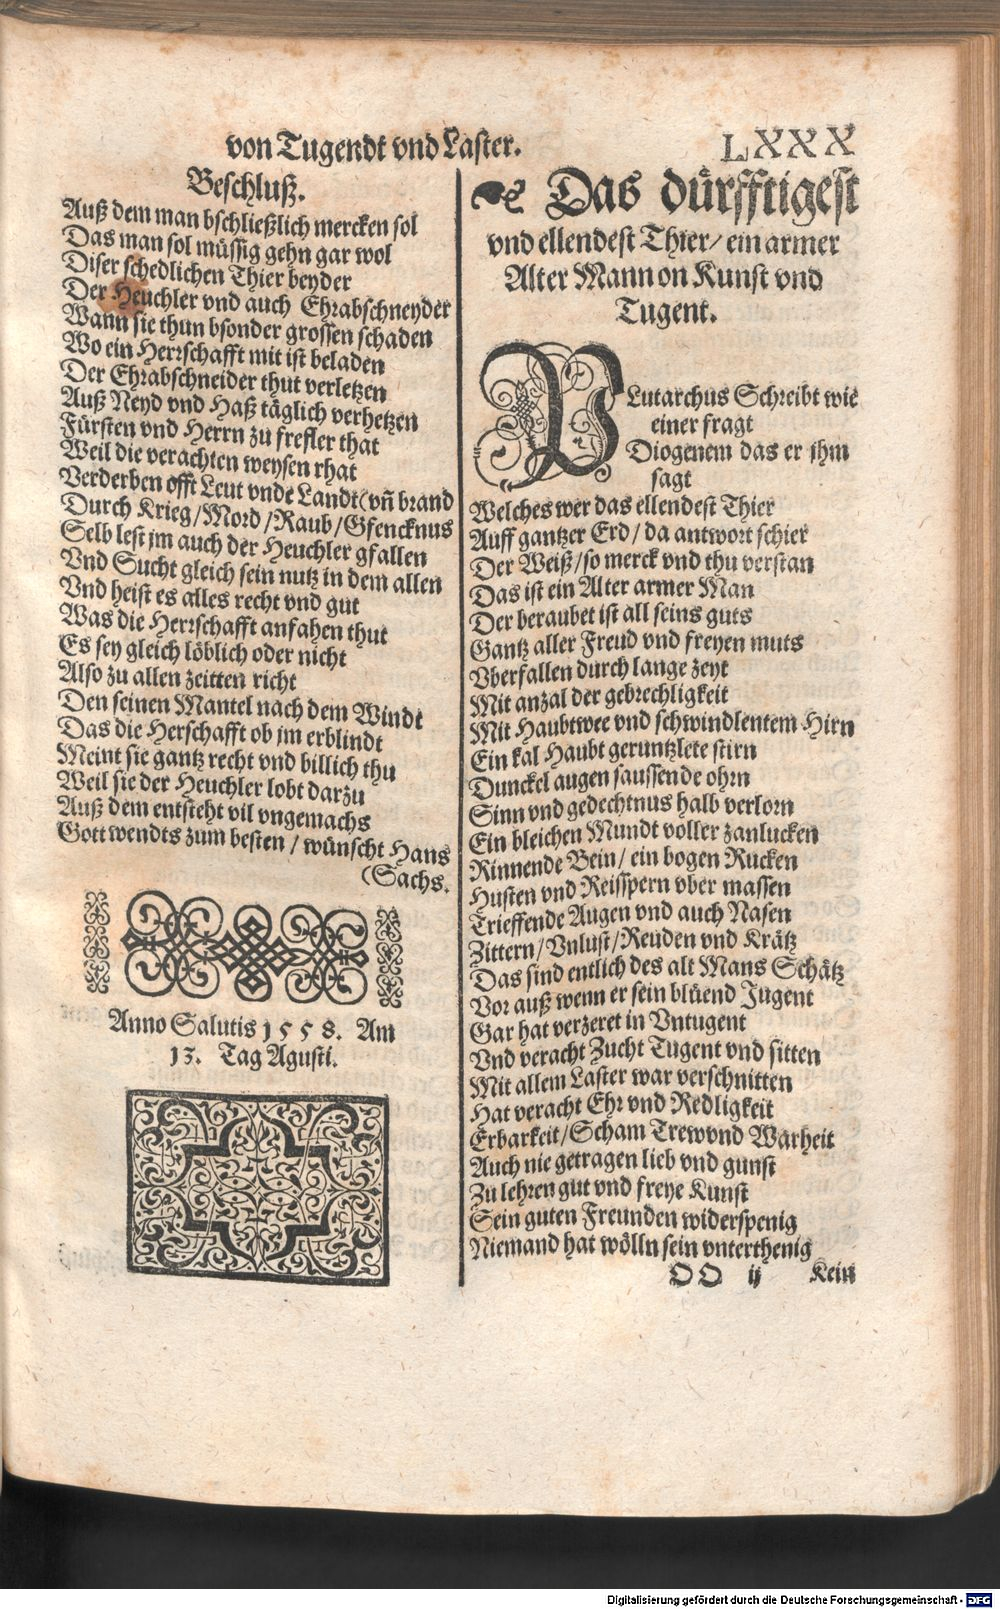 von Tugendt vnd Laster.
LXXX
Beschluß.
Auß dem man bschließlich mercken sol
Das man sol müssig gehn gar wol
Diser schedlichen Thier beyder
Der Heuchler vnd auch Ehrabschneyder
Wann sie thun bsonder grossen schaden
Wo ein Herrschafft mit ist beladen
Der Ehrabschneider thut verletzen
Auß Neyd vnd Haß täglich verhetzen
Fürsten vnd Herrn zu frefler that
Weil die verachten weysen rhat
Verderben offt Leut vnde Landt (vñ brand
Durch Krieg/Mord/Raub/Gfencknus
Selb lest jm auch der Heuchler gfallen
Vnd Sucht gleich sein nutz in dem allen
Vnd heist es alles recht vnd gut
Was die Herrschafft anfahen thut
Es sey gleich löblich oder nicht
Also zu allen zeitten richt
Den seinen Mantel nach dem Windt
Das die Herschafft ob jm erblindt
Meint sie gantz recht vnd billich thu
Weil sie der Heuchler lobt darzu
Auß dem entsteht vil vngemachs
Gott wendts zum besten / wünscht Hans
(Sachs.
Anno Salutis 1558. Am
13. Tag Agusti.
Das dürfftigest
vnd ellendest Thier/ ein armer
Alter Mann on Kunst vnd
Tugent.
PLutarchus Schreibt wie
einer fragt
Diogenem das er jhm
sagt
Welches wer das ellendest Thier
Auff gantzer Erd / da antwort schier
Der Weiß/so merck vnd thu verstan
Das ist ein Alter armer Man
Der beraubet ist all seins guts
Gantz aller Freud vnd freyen muts
Vberfallen durch lange zeyt
Mit anzal der gebrechligkeit
Mit Haubtwee vnd schwindlentem Hirn
Ein kal Haubt geruntzlete stirn
Dunckel augen saussende ohrn
Sinn vnd gedechtnus halb verlorn
Ein bleichen Mundt voller zanlucken
Rinnende Bein/ ein bogen Rucken
Husten vnd Reisspern vber massen
Trieffende Augen vnd auch Nasen
Zittern/Vnlust/Reuden vnd Krätz
Das sind entlich des alt Mans Schätz
Vor auß wenn er sein blüend Jugent
Gar hat verzeret in Vntugent
Vnd veracht Zucht Tugent vnd sitten
Mit allem Laster war verschnitten
Hat veracht Ehr vnd Redligkeit
Erbarkeit/Scham Trew vnd Warheit
Auch nie getragen lieb vnd gunst
Zu lehren gut vnd freye Kunst
Sein guten Freunden widerspenig
Niemand hat wölln sein vnterthenig
OO ij Kein
Digitalisierung gefördert durch die Deutsche Forschungsgemeinschaft - DFG